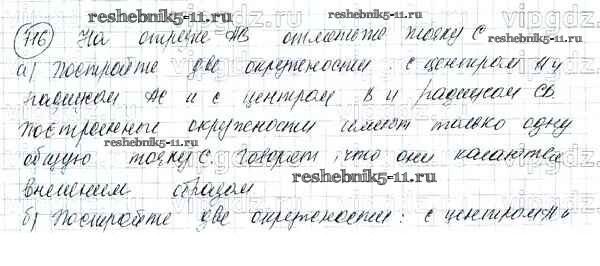 reshebnik5-11.ru reshebnik5-11.ru
716) На отрезке АВ отметьте точку С
а) Постройте две окружности: с центром А и
радиусом АС и с центром В и радиусом СВ.
Построенные окружности имеют только одну
общую точку С. Говорят, что они касаются
reshebnik5-11.ru
внешним образом
б) Постройте две окружности: с центром А и
reshebnik5-11.ru